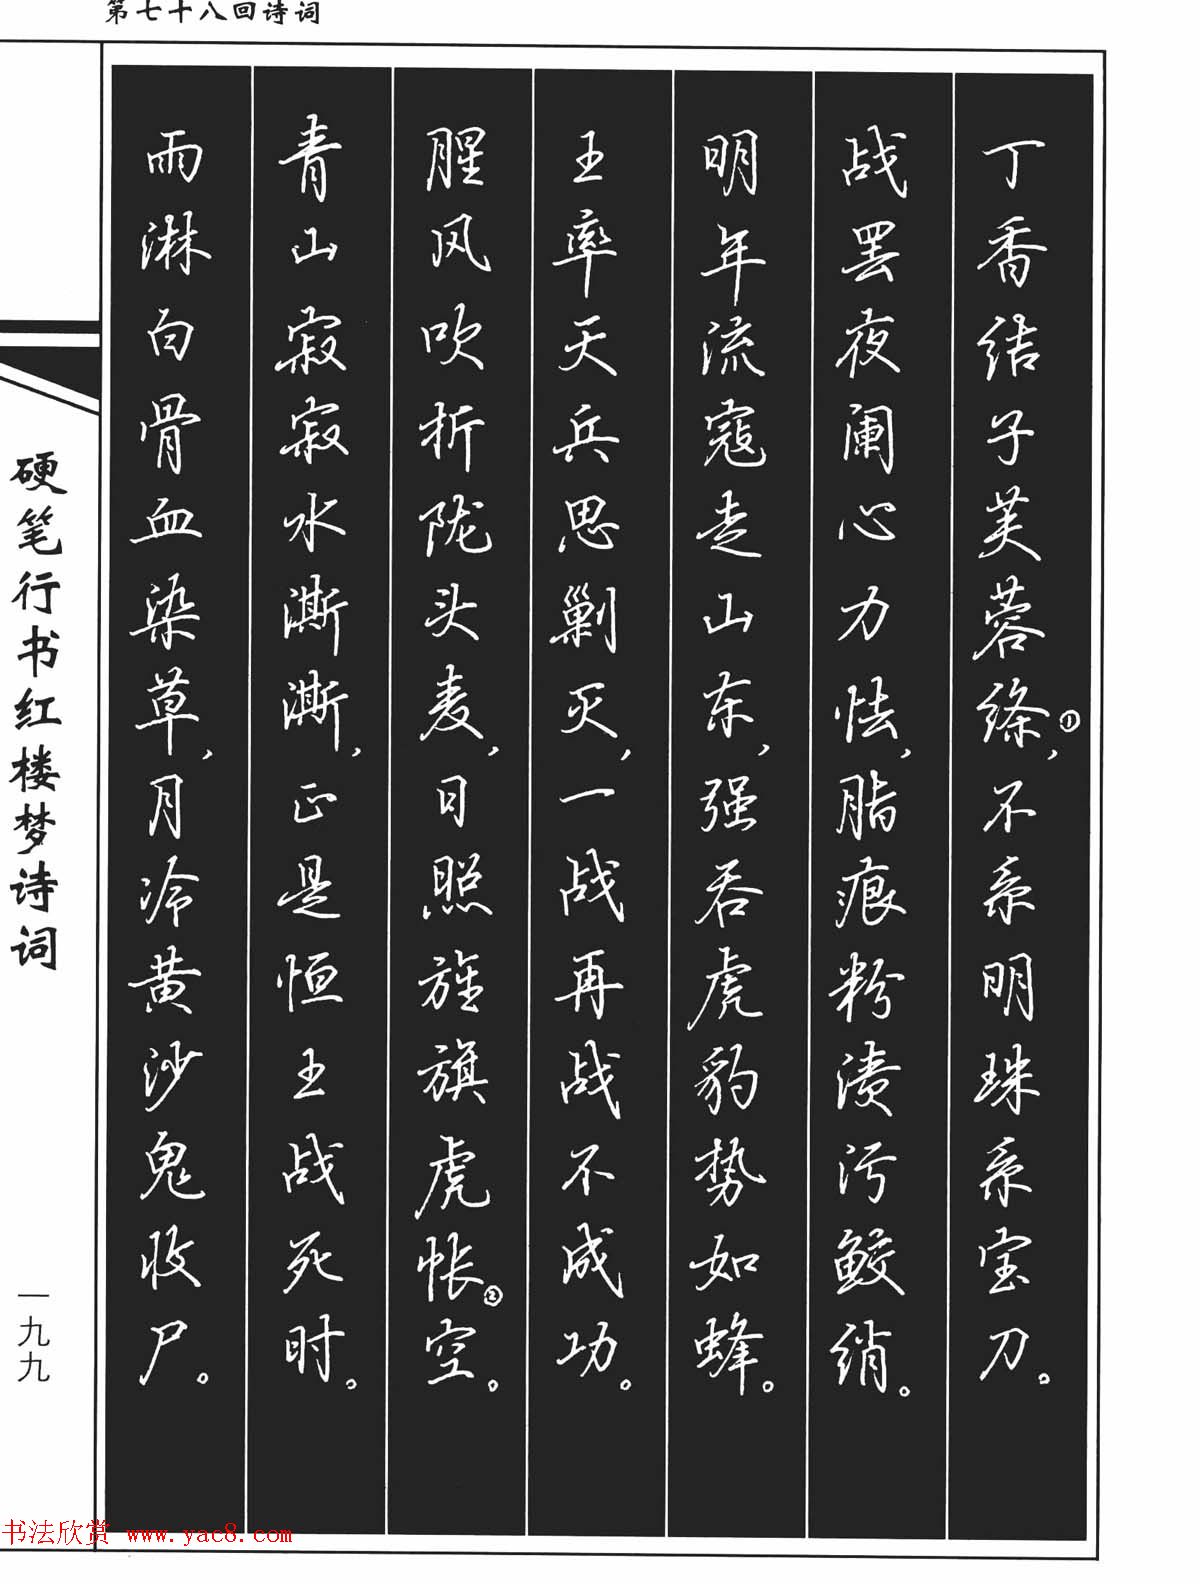 第七十八回诗词
丁香结子芙蓉绦①，不系明珠系宝刀。
战罢夜阑心力怯，脂痕粉渍污鲛绡。
明年流寇走山东，强吞虎豹势如蜂。
王率天兵思剿灭，一战再战不成功。
腥风吹折陇头麦，日照旌旗虎帐②空。
青山寂寂水澌澌，正是恒王战死时。
雨淋白骨血染草，月冷黄沙鬼收尸。
硬笔行书红楼梦诗词
一九九
书法欣赏 www.yac8.com